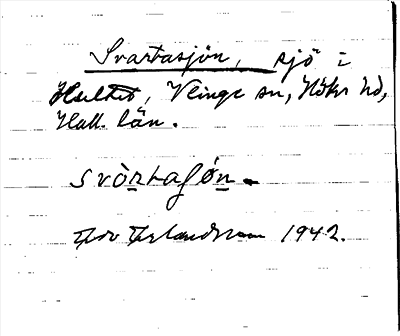 Svartasjön, sjö i
Hultet, Veinge sn, Höks hd,
Hall. län.
svòrtaſó̱n.
Thv Erlandsson 1942.